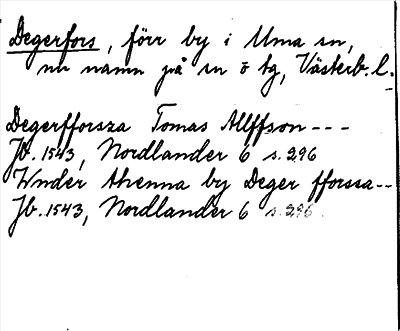 Degerfors, förr by i Uma sn,
nu namn på sn o tg, Västerb. l.
Degerfforsza Tomas Allffson ---
Jb. 1543, Nordlander 6 s. 296
Wnder thenna by Deger fforssa --
Jb. 1543, Nordlander 6 s. 296